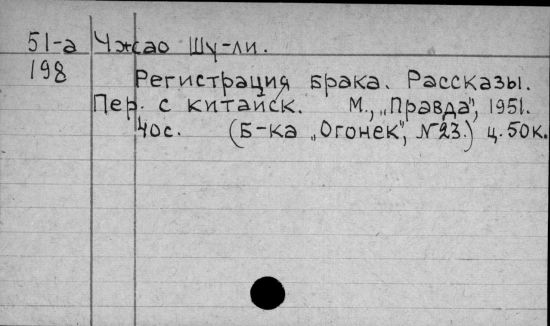 51-а Чжао Шу-ли.
198 Регистрация брака. Рассказы.
Пер. с китайск. М., „Правда", 1951.
40с. (Б-ка „Огонек", №23.) ц. 50к.